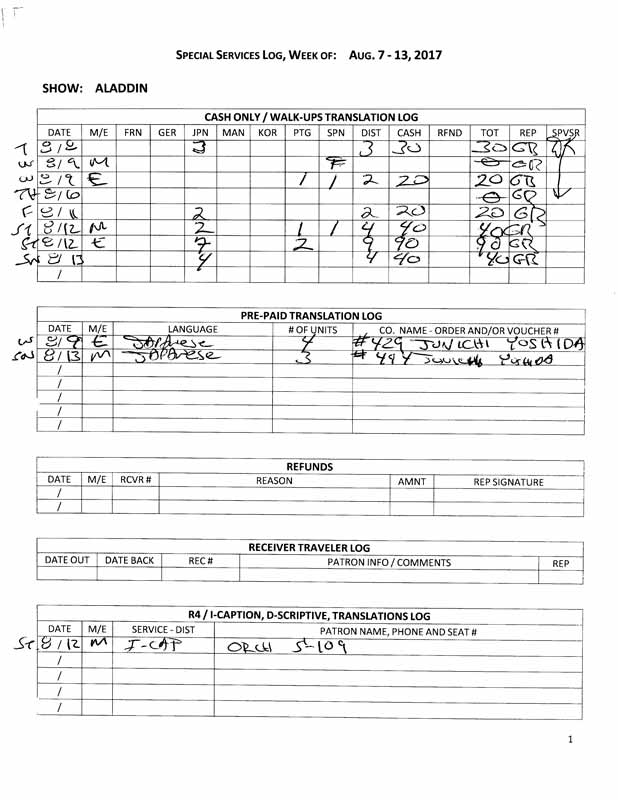 SPECIAL SERVICES LOG, WEEK OF: AUG. 7 - 13, 2017
SHOW: ALADDIN
CASH ONLY / WALK-UPS TRANSLATION LOG
DATE M/E FRN GER JPN MAN KOR PTG SPN DIST CASH RFND TOT REP SPVSR
T 8/8 3 3 30 30 GR
W 8/9 M 0 GR
W 8/9 E 1 1 2 20 20 GR
TH 8/10 0 GR
F 8/11 2 2 20 20 GR
ST 8/12 M 2 1 1 4 40 40 GR
ST 8/12 E 7 2 9 90 90 GR
SN 8/13 4 4 40 40 GR
/
PRE-PAID TRANSLATION LOG
DATE M/E LANGUAGE # OF UNITS CO. NAME - ORDER AND/OR VOUCHER #
W 8/9 E JAPANESE 4 #429 JUNICHI YOSHIDA
SN 8/13 M JAPANESE 3 #494 JUNICHI YOSHIDA
/
/
/
/
/
REFUNDS
DATE M/E RCVR # REASON AMNT REP SIGNATURE
/
/
RECEIVER TRAVELER LOG
DATE OUT DATE BACK REC # PATRON INFO / COMMENTS REP
R4 / I-CAPTION, D-SCRIPTIVE, TRANSLATIONS LOG
DATE M/E SERVICE - DIST PATRON NAME, PHONE AND SEAT #
ST 8/12 M I-CAP ORCH S-109
/
/
/
/
1